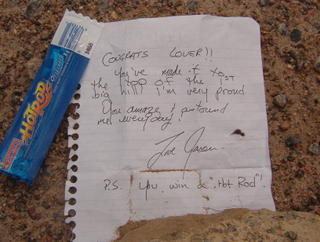 CONGRATS LOVER!!
You've made it to
the top of the 1st
big hill! i'm very proud
You amaze & astound
me everyday!
Love Jason
P.S. You win a "Hot Rod"!
HOTROD